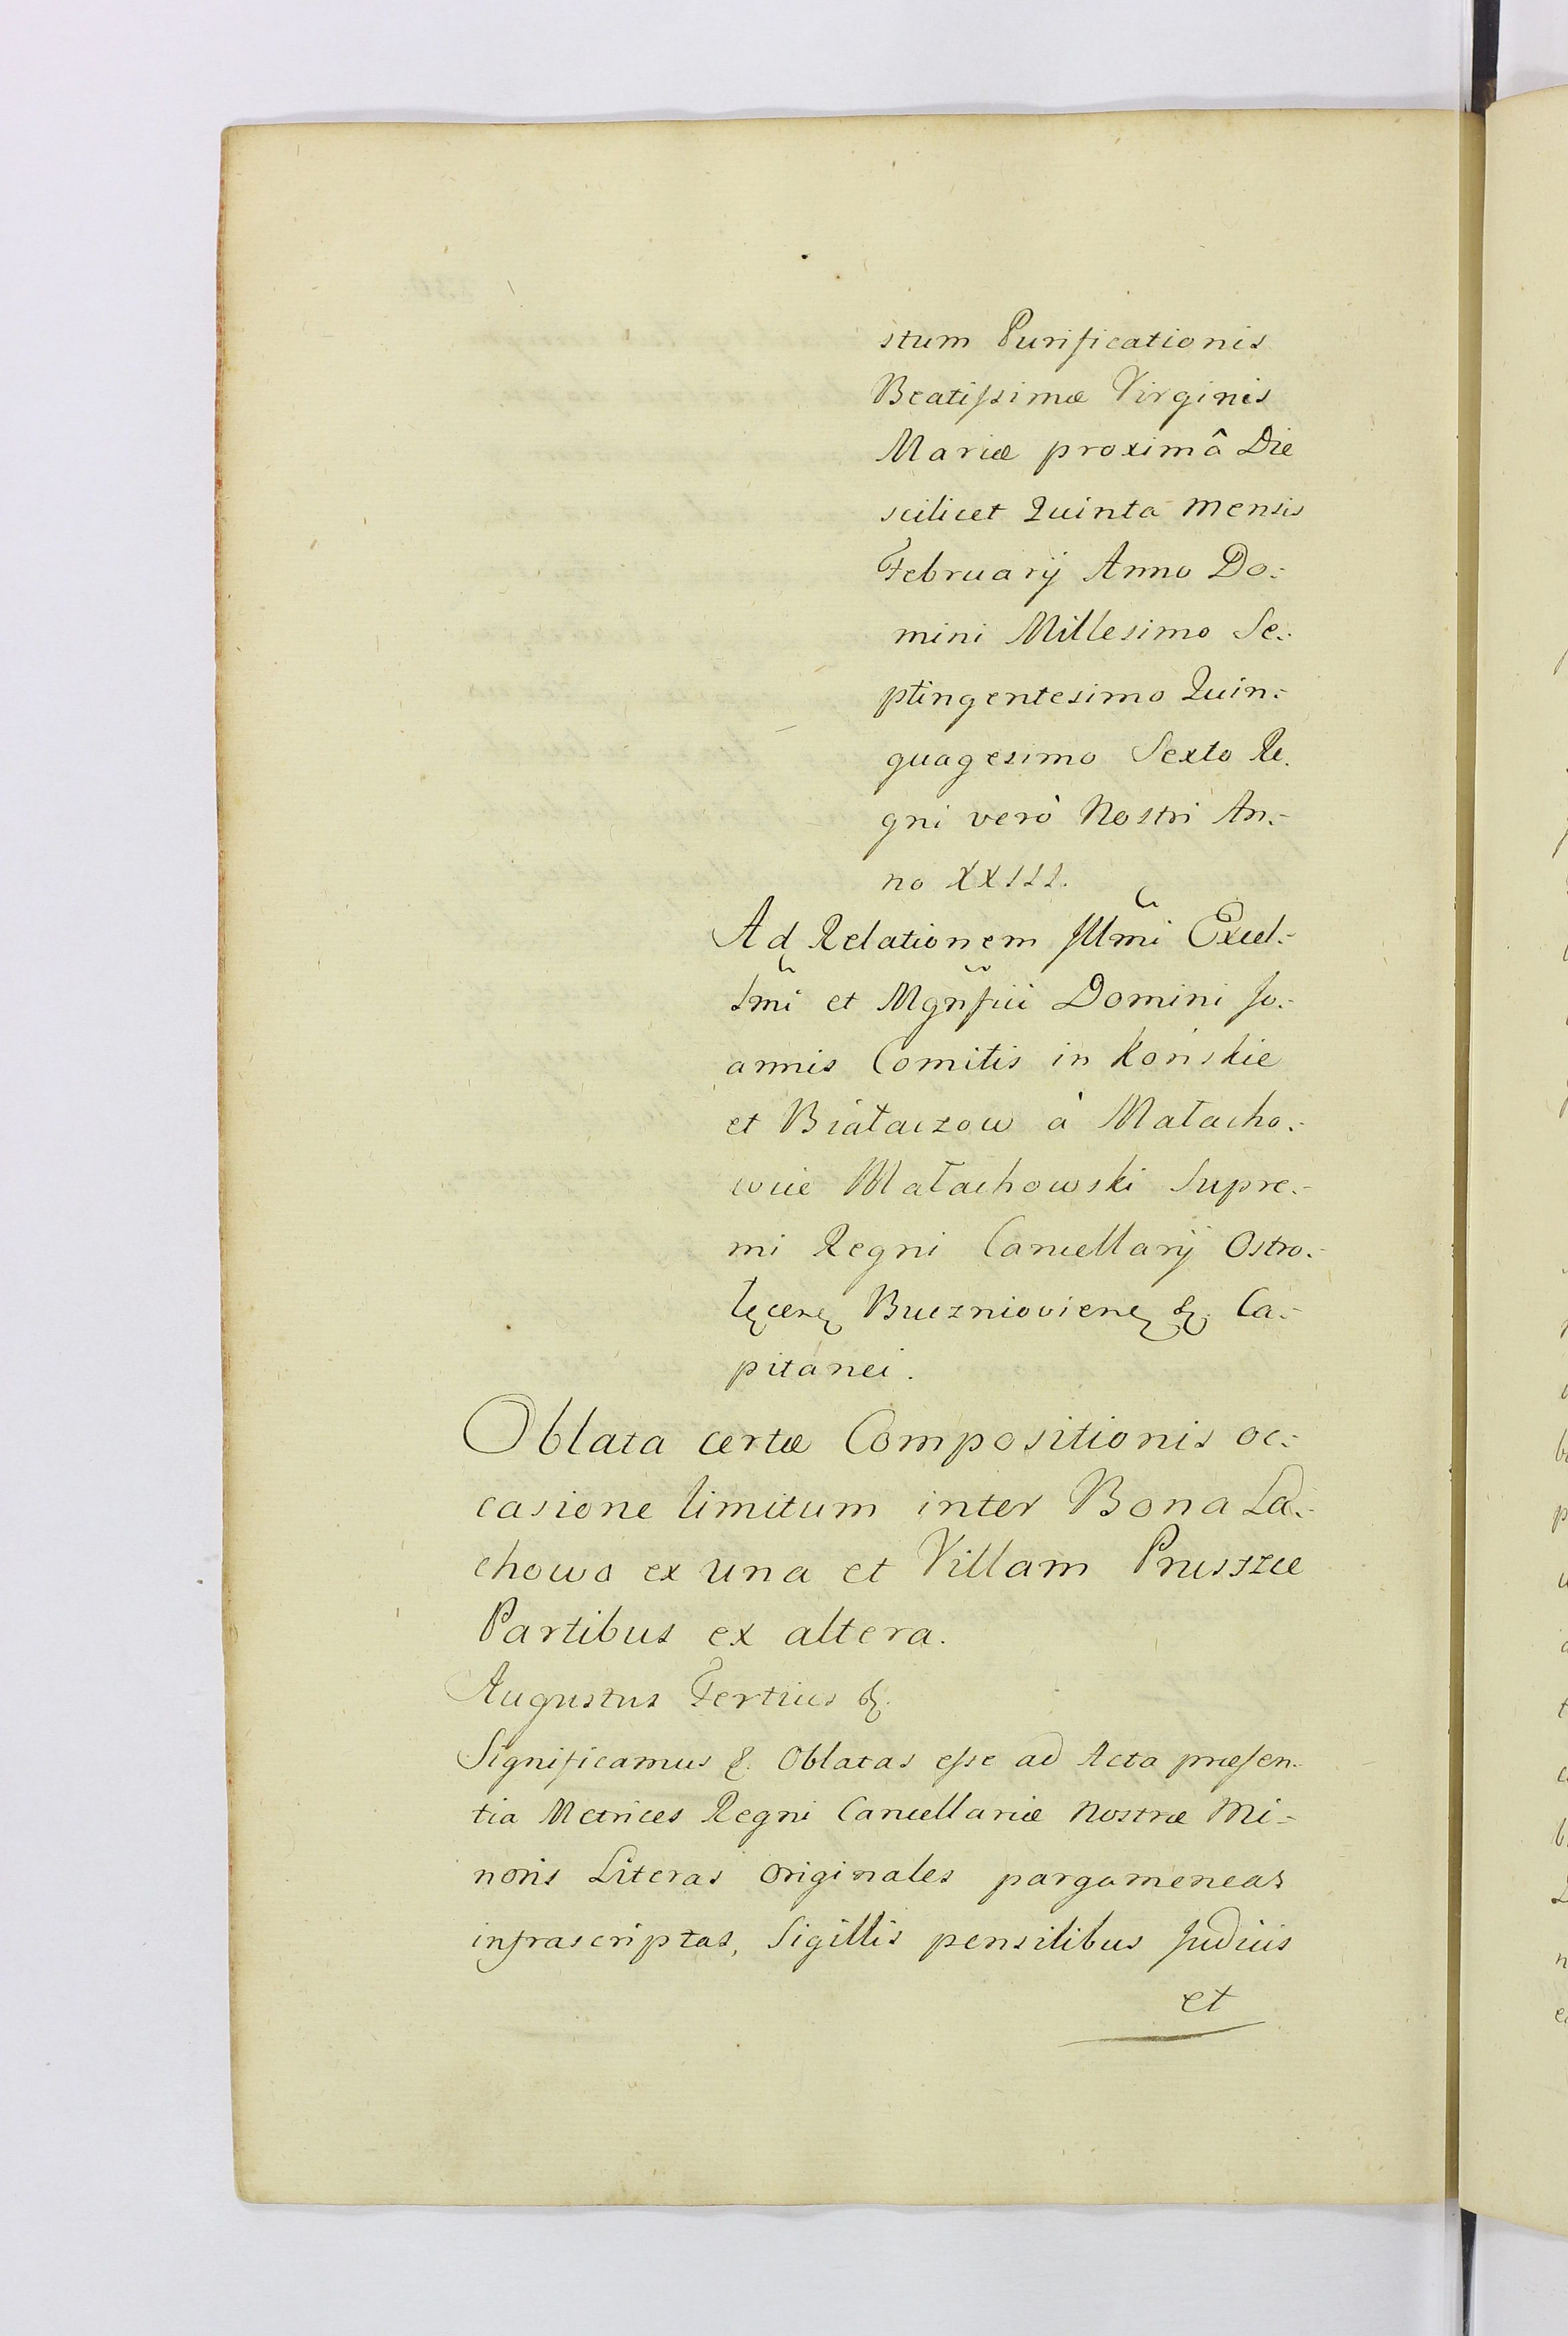 stum Purificationis
Beatiſsimæ Virginis
Mariæ proximâ Die
scilicet Quinta mensis
Februarij Anno Do:
mini Millesimo Se:
ptingentesimo Quin:
quagesimo Sexto Re.
gni verò Nostri An:
no XXIII.
Ad Relationem Illmi Excel:
Smi et Mgnfici Domini Jo:
annis Comitis in Końskie
et Białaczow à Małacho:
wice Małachowski Supre:
mi Regni Cancellarij Ostro:
łęcen Buczniovien &. Ca:
pitanei.
Oblata certæ Compositionis oc:
casione limitum inter Bona La:
chowo ex una et Villam Prussze
Partibus ex altera.
Augustus Tertius &.
Significamus &. Oblatas eſse ad Acta præsen:
tia Metrices Regni Cancellariæ Nostræ Mi:
noris Literas originales pargameneas
infrascriptas, Sigillis pensilibus Judicis
et